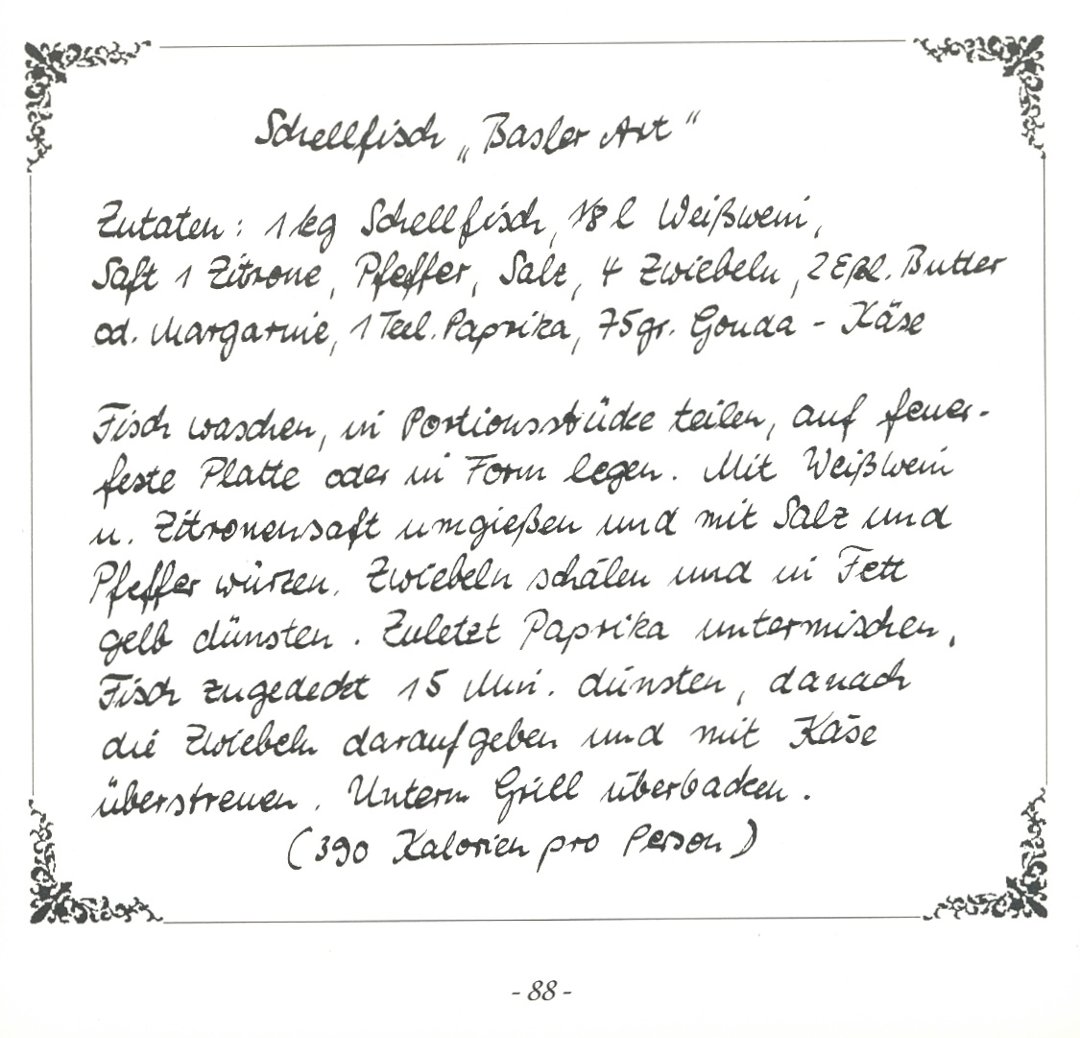 Schellfisch „Basler Art"
Zutaten: 1 kg Schellfisch, 1/8 l Weißwein,
Saft 1 Zitrone, Pfeffer, Salz, 4 Zwiebeln, 2 Eßl. Butter
od. Margarine, 1 Teel. Paprika, 75 gr. Gouda - Käse
Fisch waschen, in Portionsstücke teilen, auf feuer-
feste Platte oder in Form legen. Mit Weißwein
u. Zitronensaft umgießen und mit Salz und
Pfeffer würzen. Zwiebeln schälen und in Fett
gelb dünsten. Zuletzt Paprika untermischen.
Fisch zugedeckt 15 Min. dünsten, danach
die Zwiebeln daraufgeben und mit Käse
überstreuen. Unterm Grill überbacken.
(390 Kalorien pro Person)
- 88 -